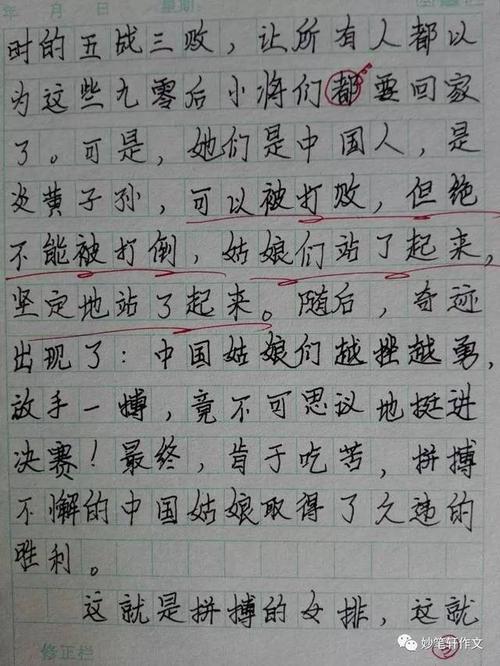 年 月 日 星期
时的五战三败，让所有人都以
为这些九零后小将们都要回家
了。可是，她们是中国人，是
炎黄子孙，可以被打败，但绝
不能被打倒，姑娘们站了起来，
坚定地站了起来。随后，奇迹
出现了：中国姑娘们越挫越勇，
放手一搏，竟不可思议地挺进
决赛！最终，肯于吃苦，拼搏
不懈的中国姑娘取得了久违的
胜利。
这就是拼搏的女排，这就
修正栏
妙笔轩作文